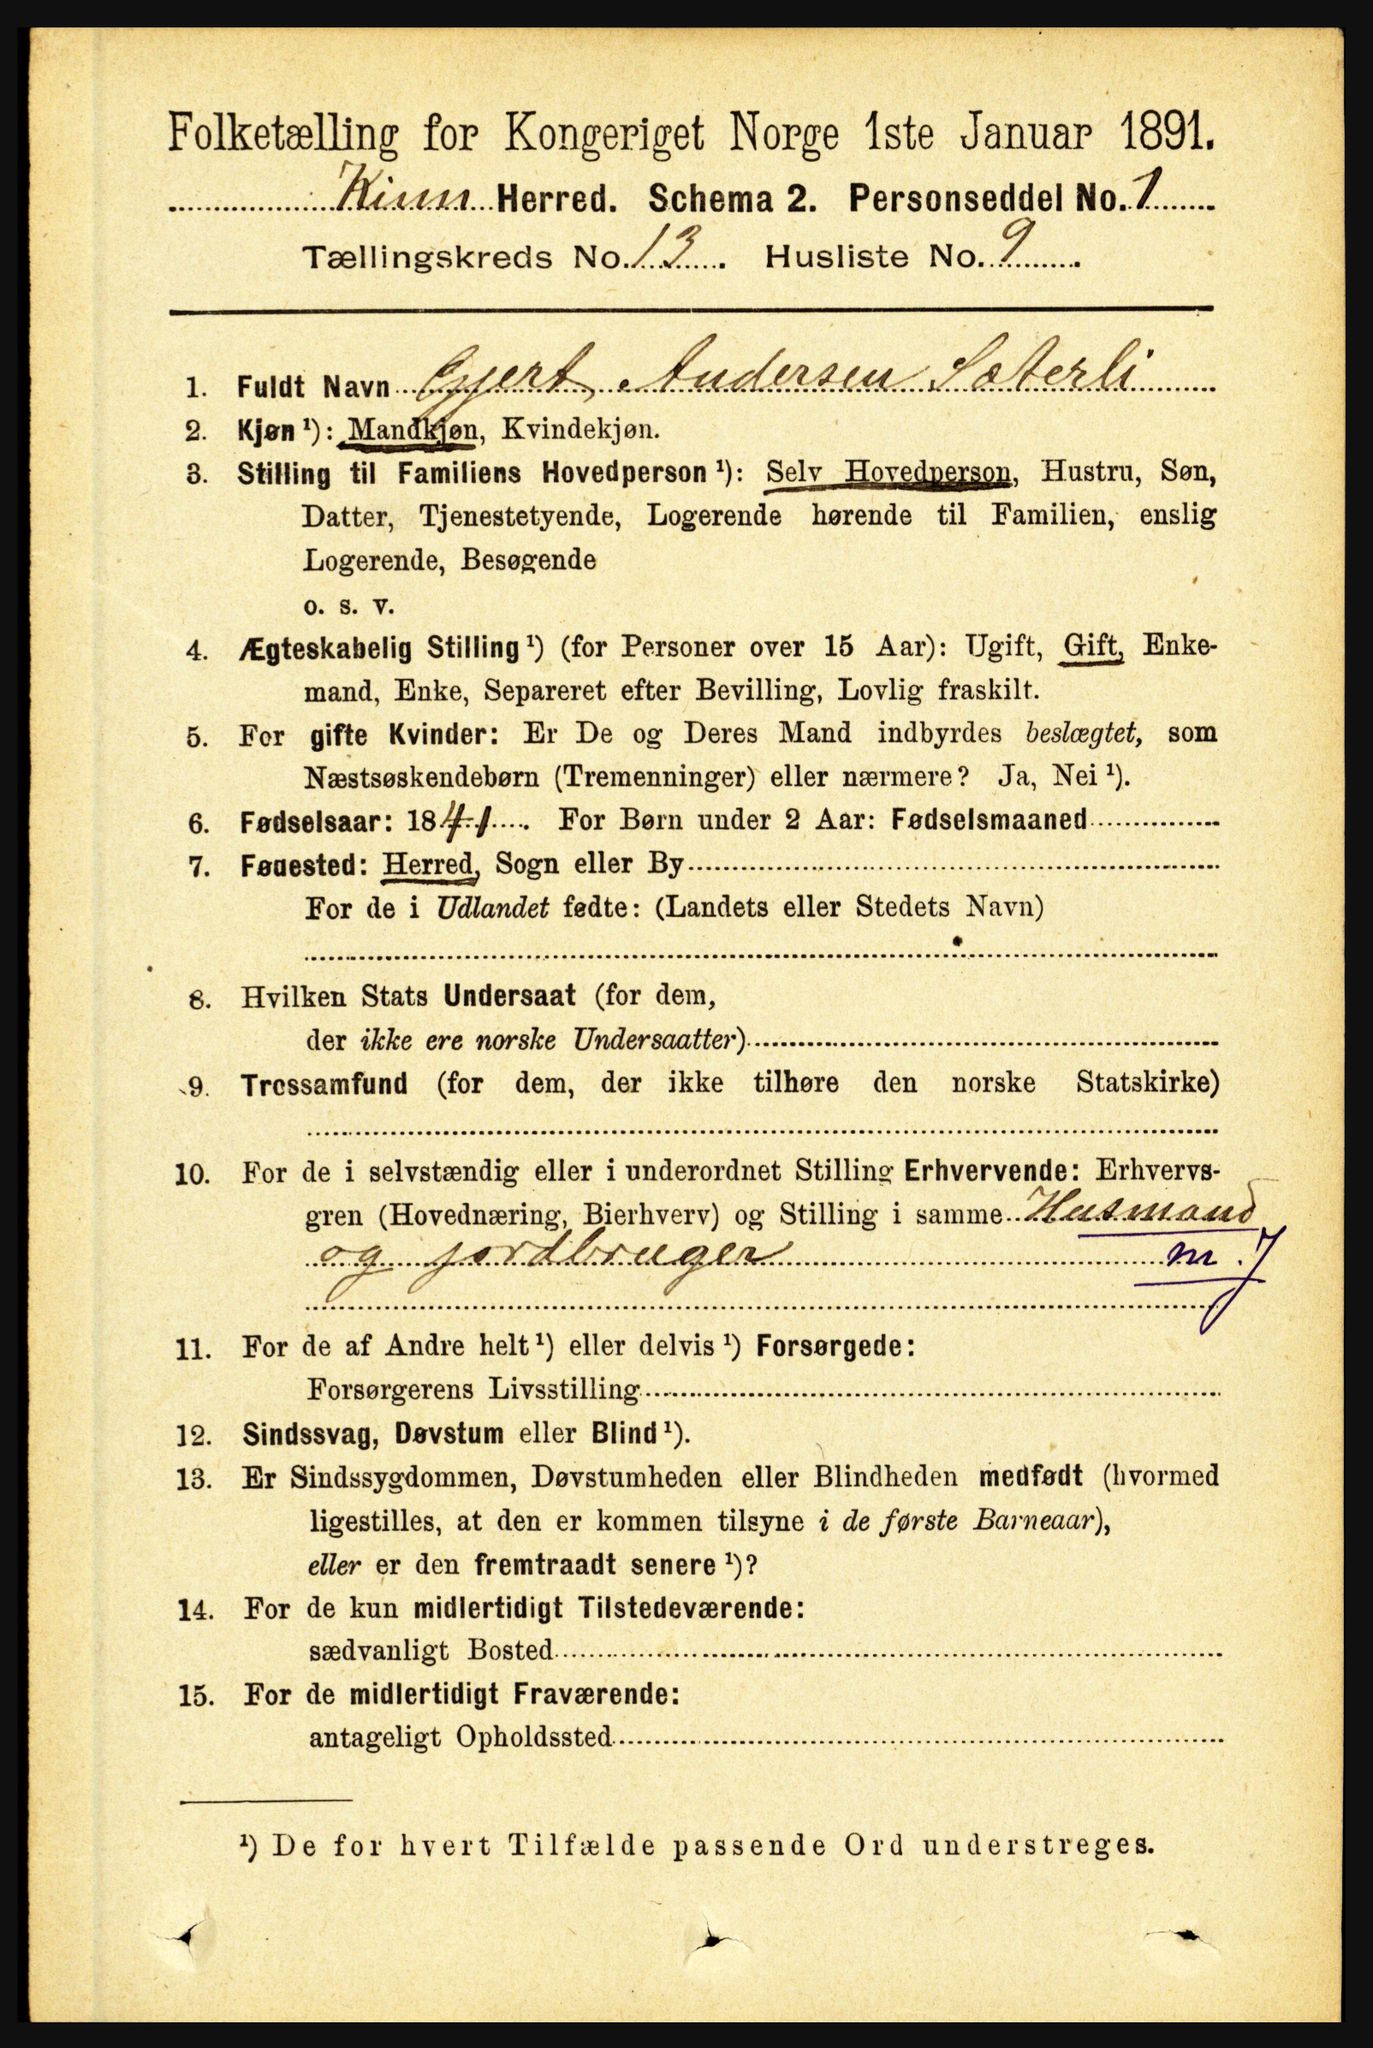 Folketælling for Kongeriget Norge 1ste Januar 1891.
Kinn Herred. Schema 2. Personseddel No. 1
Tællingskreds No. 13. Husliste No. 9.
1. Fuldt Navn Gjert Andersen Sæterli
2. Kjøn ¹): Mandkjøn, Kvindekjøn.
3. Stilling til Familiens Hovedperson ¹): Selv Hovedperson, Hustru, Søn,
Datter, Tjenestetyende, Logerende hørende til Familien, enslig
Logerende, Besøgende
o. s. v.
4. Ægteskabelig Stilling ¹) (for Personer over 15 Aar): Ugift, Gift, Enke-
mand, Enke, Separeret efter Bevilling, Lovlig fraskilt.
5. For gifte Kvinder: Er De og Deres Mand indbyrdes beslægtet, som
Næstsøskendebørn (Tremenninger) eller nærmere? Ja, Nei ¹).
6. Fødselsaar: 1841. For Børn under 2 Aar: Fødselsmaaned
7. Føuested: Herred, Sogn eller By
For de i Udlandet fødte: (Landets eller Stedets Navn)
8. Hvilken Stats Undersaat (for dem,
der ikke ere norske Undersaatter)
9. Trossamfund (for dem, der ikke tilhøre den norske Statskirke)
10. For de i selvstændig eller i underordnet Stilling Erhvervende: Erhvervs-
gren (Hovednæring, Bierhverv) og Stilling i samme Husmand
og jordbruger m. J
11. For de af Andre helt ¹) eller delvis ¹) Forsørgede:
Forsørgerens Livsstilling
12. Sindssvag, Døvstum eller Blind ¹).
13. Er Sindssygdommen, Døvstumheden eller Blindheden medfødt (hvormed
ligestilles, at den er kommen tilsyne i de første Barneaar),
eller er den fremtraadt senere ¹)?
14. For de kun midlertidigt Tilstedeværende:
sædvanligt Bosted
15. For de midlertidigt Fraværende:
antageligt Opholdssted
¹) De for hvert Tilfælde passende Ord understreges.